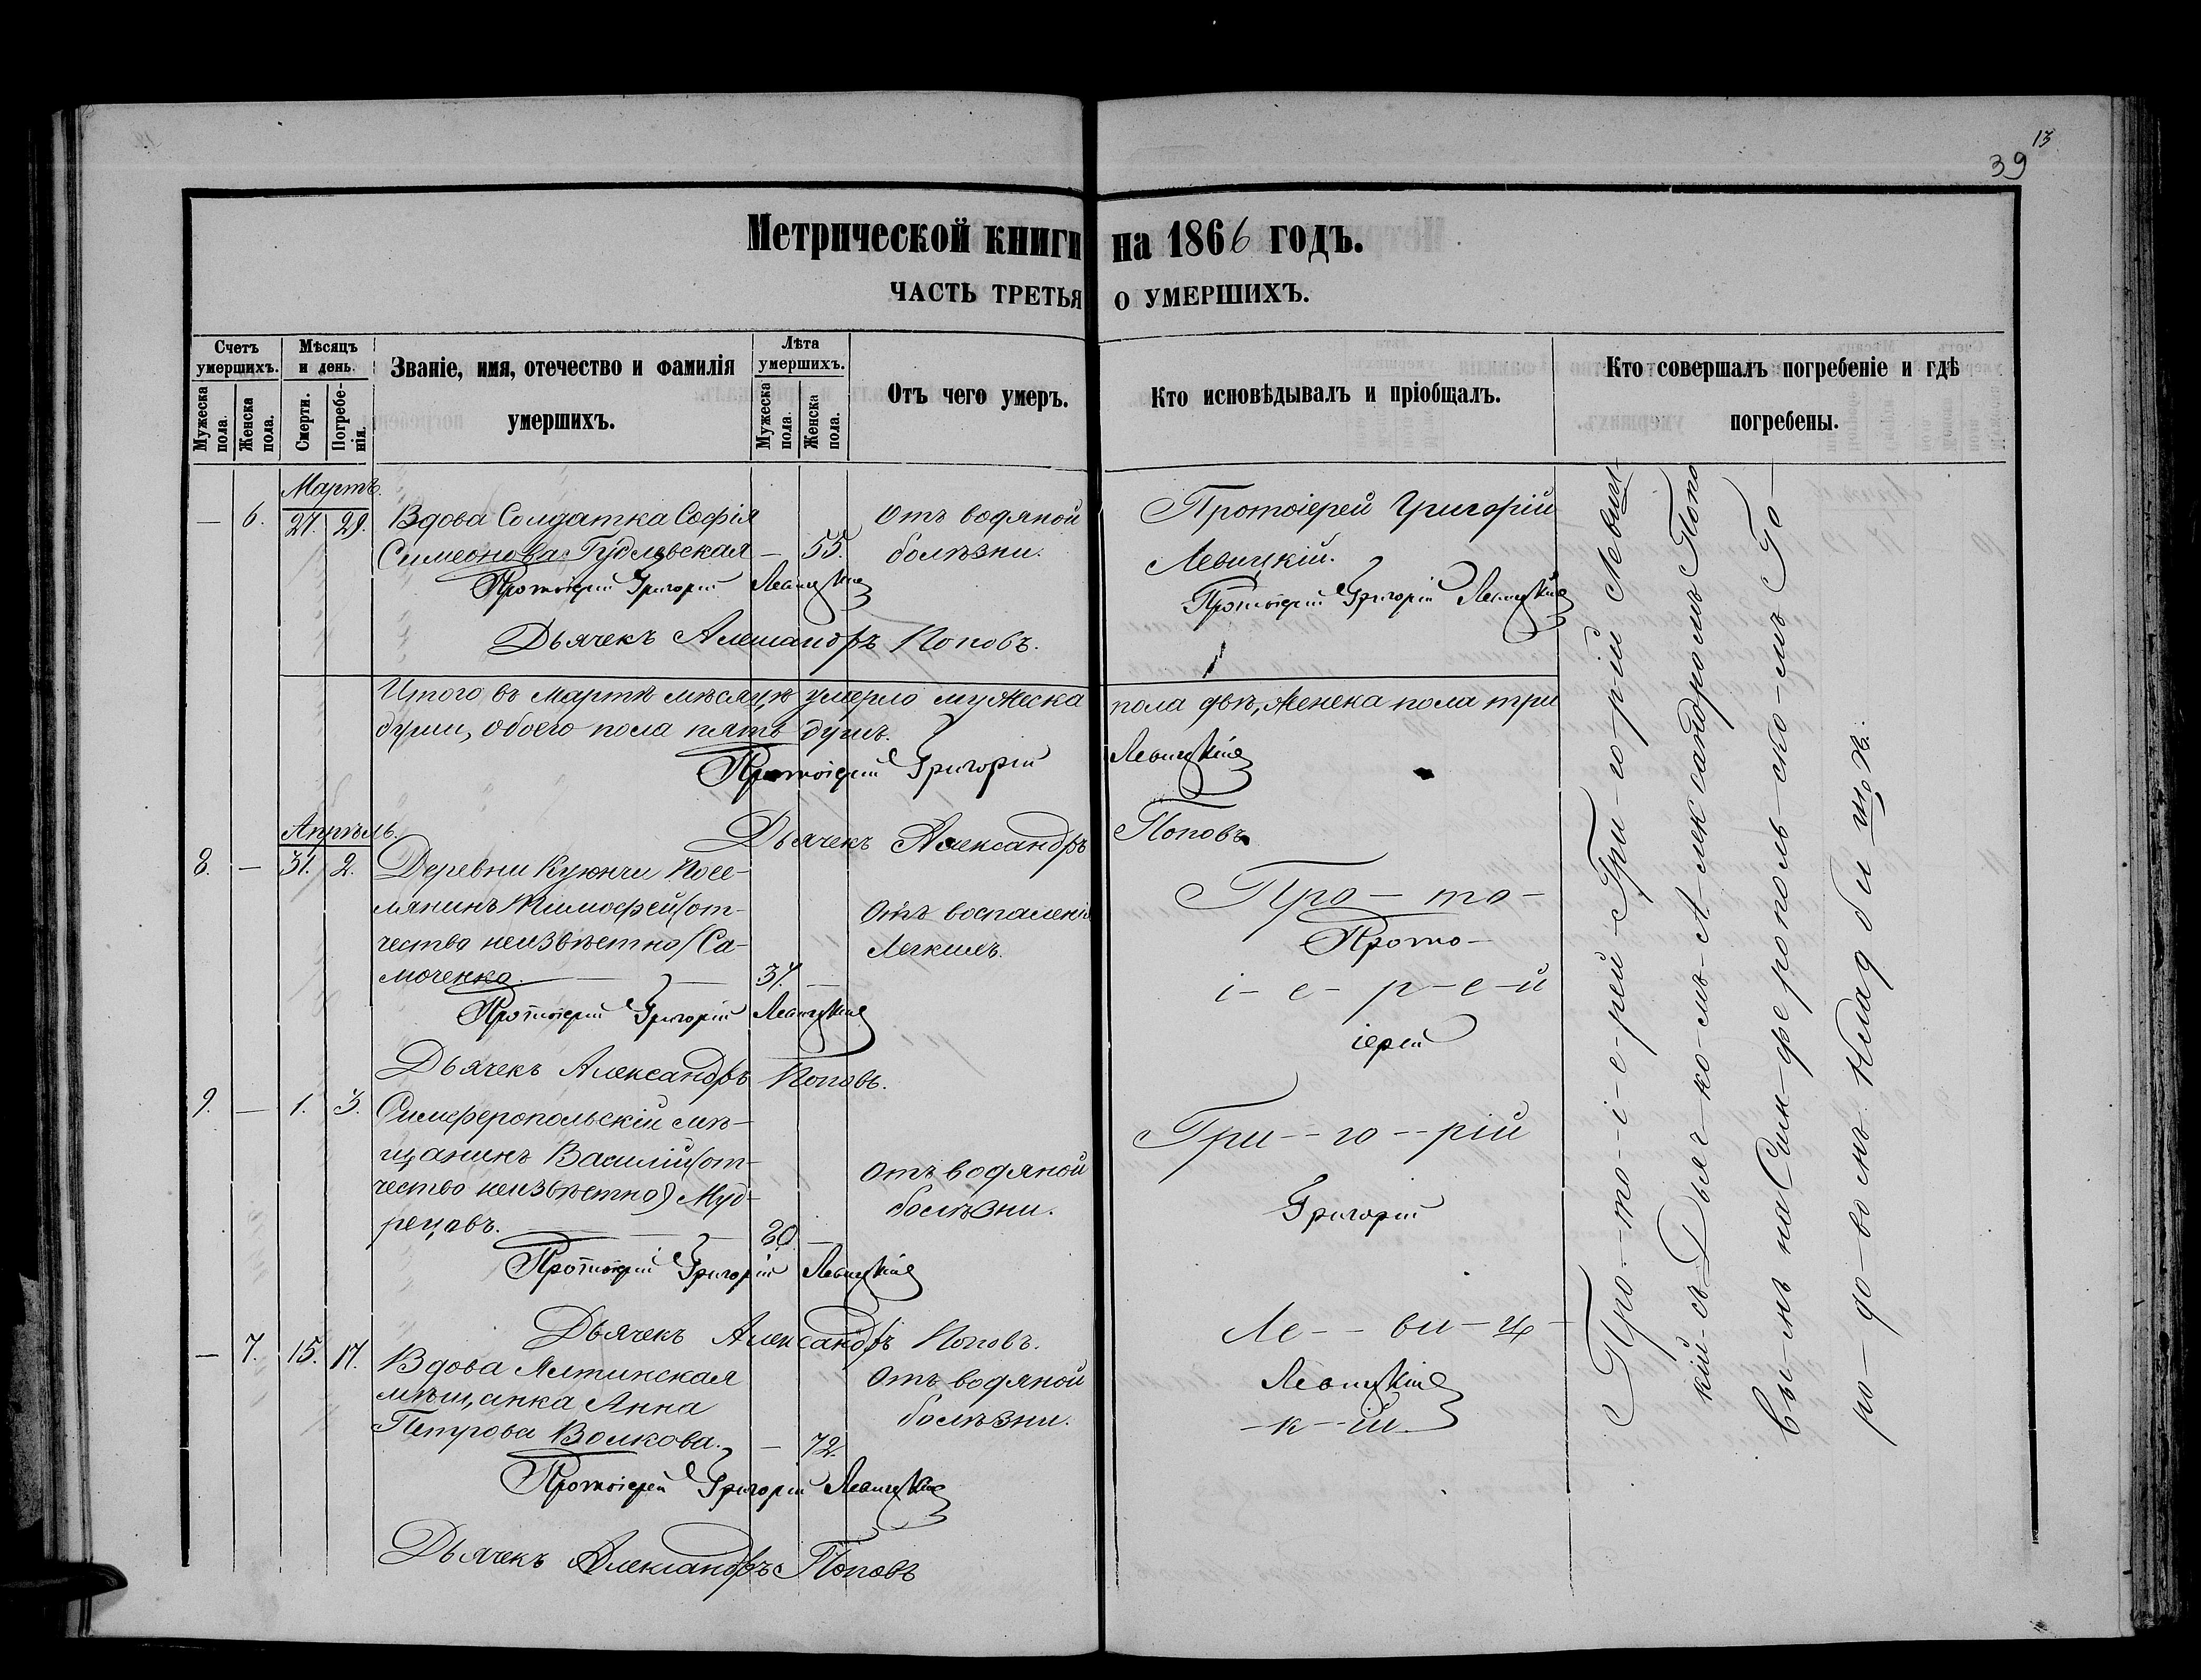 13
39
Метрической книги на 1866 годъ.
ЧАСТЬ ТРЕТЬЯ О УМЕРШИХЪ.
Счетъ умершихъ.
Мужеска пола.
Женска пола.
Мѣсяцъ и день.
Смерти.
Погребенія.
Званіе, имя, отечество и фамилія
умершихъ.
Лѣта умершихъ.
Мужеска пола.
Женска пола.
Отъ чего умеръ.
Кто исповѣдывалъ и пріобщалъ.
Кто совершалъ погребеніе и гдѣ
погребены.
Мартъ.
— 6. 27. 29. Вдова Солдатка Софія Отъ водяной Протоіерей Григорій
Симеонова Гудлевская — 55. болѣзни. Левицкій.
Протоіерей Григорій Левицкій Протоіерей Григорій Левицкій
Дьячекъ Александръ Поповъ.
Итого въ Мартѣ мѣсяцѣ умерло мужеска пола двѣ, женска пола три
души, обоего пола пять душъ.
Протоіерей Григорій Левицкій
Апрѣль.
Дьячекъ Александръ Поповъ
8. — 31. 2. Деревни Куюнчи Посе-
лянинъ Тимофей (от- Отъ воспаленія
чество неизвѣстно) Са- Легкихъ.
моченко. 37. —
Протоіерей Григорій Левицкій
Дьячекъ Александръ Поповъ.
9. — 1. 3. Симферопольскій мѣ-
щанинъ Василій (от- Отъ водяной
чество неизвѣстно) Муд- болѣзни.
рецовъ. 20. —
Протоіерей Григорій Левицкій
Дьячекъ Александръ Поповъ.
— 7. 15. 17. Вдова Ялтинская Отъ водяной
мѣщанка Анна болѣзни.
Петрова Волкова. — 72.
Протоіерей Григорій Левицкій
Дьячекъ Александръ Поповъ
Про — то —
Прото —
і — е — р — е — й
іерей
Гри — го — рій
Григорій
Ле — ви — ц —
Левицкій
— к — ій
Про — то — і — е — рей Гри — го — рій Левиц-
кій съ Дьяч — ко — мъ Александромъ Попо
вы — мъ на Сим — фе рополь — ско — мъ Го —
ро — до — во мъ Клад би щѣ.